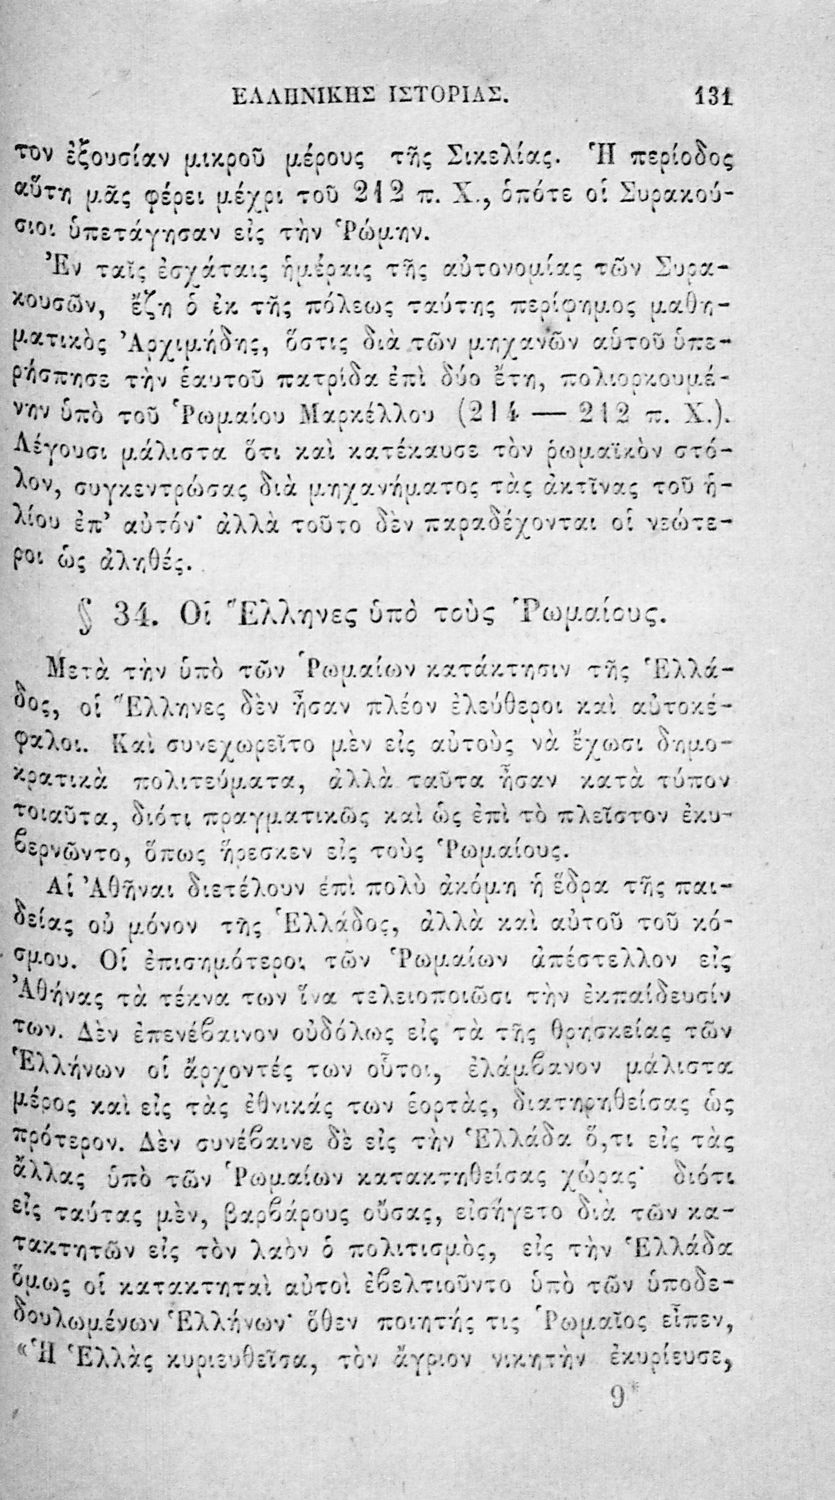 ΕΛΛΗΝΙΚΗΣ ΙΣΤΟΡΙΑΣ. 131
τον ἐξουσίαν μικροῦ μέρους τῆς Σικελίας. Ἡ περίοδος
αὕτη μᾶς φέρει μέχρι τοῦ 212 π. Χ., ὁπότε οἱ Συρακού-
σιοι ὑπετάγησαν εἰς τὴν Ῥώμην.
Ἐν ταῖς ἐσχάταις ἡμέραις τῆς αὐτονομίας τῶν Συρα-
κουσῶν, ἔζη ὁ ἐκ τῆς πόλεως ταύτης περίφημος μαθη-
ματικὸς Ἀρχιμήδης, ὅστις διὰ τῶν μηχανῶν αὑτοῦ ὑπε-
ρήσπησε τὴν ἑαυτοῦ πατρίδα ἐπὶ δύο ἔτη, πολιορκουμέ-
νην ὑπὸ τοῦ Ῥωμαίου Μαρκέλλου (214 — 212 π. Χ.).
Λέγουσι μάλιστα ὅτι καὶ κατέκαυσε τὸν ῥωμαϊκὸν στό-
λον, συγκεντρώσας διὰ μηχανήματος τὰς ἀκτῖνας τοῦ ἡ-
λίου ἐπ' αὐτόν· ἀλλὰ τοῦτο δὲν παραδέχονται οἱ νεώτε-
ροι ὡς ἀληθές.
§ 34. Οἱ Ἕλληνες ὑπὸ τοὺς Ῥωμαίους.
Μετὰ τὴν ὑπὸ τῶν Ῥωμαίων κατάκτησιν τῆς Ἑλλά-
δος, οἱ Ἕλληνες δὲν ἦσαν πλέον ἐλεύθεροι καὶ αὐτοκέ-
φαλοι. Καὶ συνεχωρεῖτο μὲν εἰς αὐτοὺς νὰ ἔχωσι δημο-
κρατικὰ πολιτεύματα, ἀλλὰ ταῦτα ἦσαν κατὰ τύπον
τοιαῦτα, διότι πραγματικῶς καὶ ὡς ἐπὶ τὸ πλεῖστον ἐκυ-
βερνῶντο, ὅπως ἤρεσκεν εἰς τοὺς Ῥωμαίους.
Αἱ Ἀθῆναι διετέλουν ἐπὶ πολὺ ἀκόμη ἡ ἕδρα τῆς παι-
δείας οὐ μόνον τῆς Ἑλλάδος, ἀλλὰ καὶ αὐτοῦ τοῦ κό-
σμου. Οἱ ἐπισημότεροι τῶν Ῥωμαίων ἀπέστελλον εἰς
Ἀθήνας τὰ τέκνα των ἵνα τελειοποιῶσι τὴν ἐκπαίδευσίν
των. Δὲν ἐπενέβαινον οὐδόλως εἰς τὰ τῆς θρησκείας τῶν
Ἑλλήνων οἱ ἄρχοντές των οὗτοι, ἐλάμβανον μάλιστα
μέρος καὶ εἰς τὰς ἐθνικάς των ἑορτὰς, διατηρηθείσας ὡς
πρότερον. Δὲν συνέβαινε δὲ εἰς τὴν Ἑλλάδα ὅ,τι εἰς τὰς
ἄλλας ὑπὸ τῶν Ῥωμαίων κατακτηθείσας χώρας· διότι
εἰς ταύτας μὲν, βαρβάρους οὔσας, εἰσήγετο διὰ τῶν κα-
τακτητῶν εἰς τὸν λαὸν ὁ πολιτισμὸς, εἰς τὴν Ἑλλάδα
ὅμως οἱ κατακτηταὶ αὐτοὶ ἐβελτιοῦντο ὑπὸ τῶν ὑποδε-
δουλωμένων Ἑλλήνων· ὅθεν ποιητής τις Ῥωμαῖος εἶπεν,
«Ἡ Ἑλλὰς κυριευθεῖσα, τὸν ἄγριον νικητὴν ἐκυρίευσε,
9*